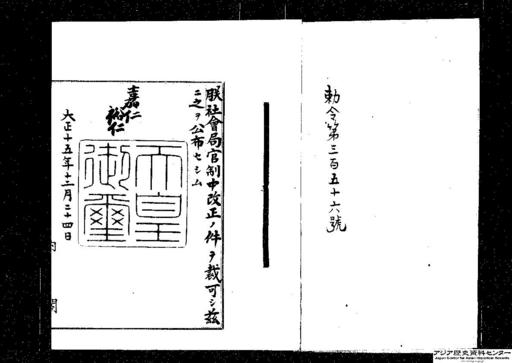 勅令第三百五十六號
朕社會局官制中改正ノ件ヲ裁可シ茲
ニ之ヲ公布セシム
嘉仁
裕仁
天皇
御璽
大正十五年十二月二十四日
内閣
アジア歴史資料センター
Japan Center for Asian Historical Records